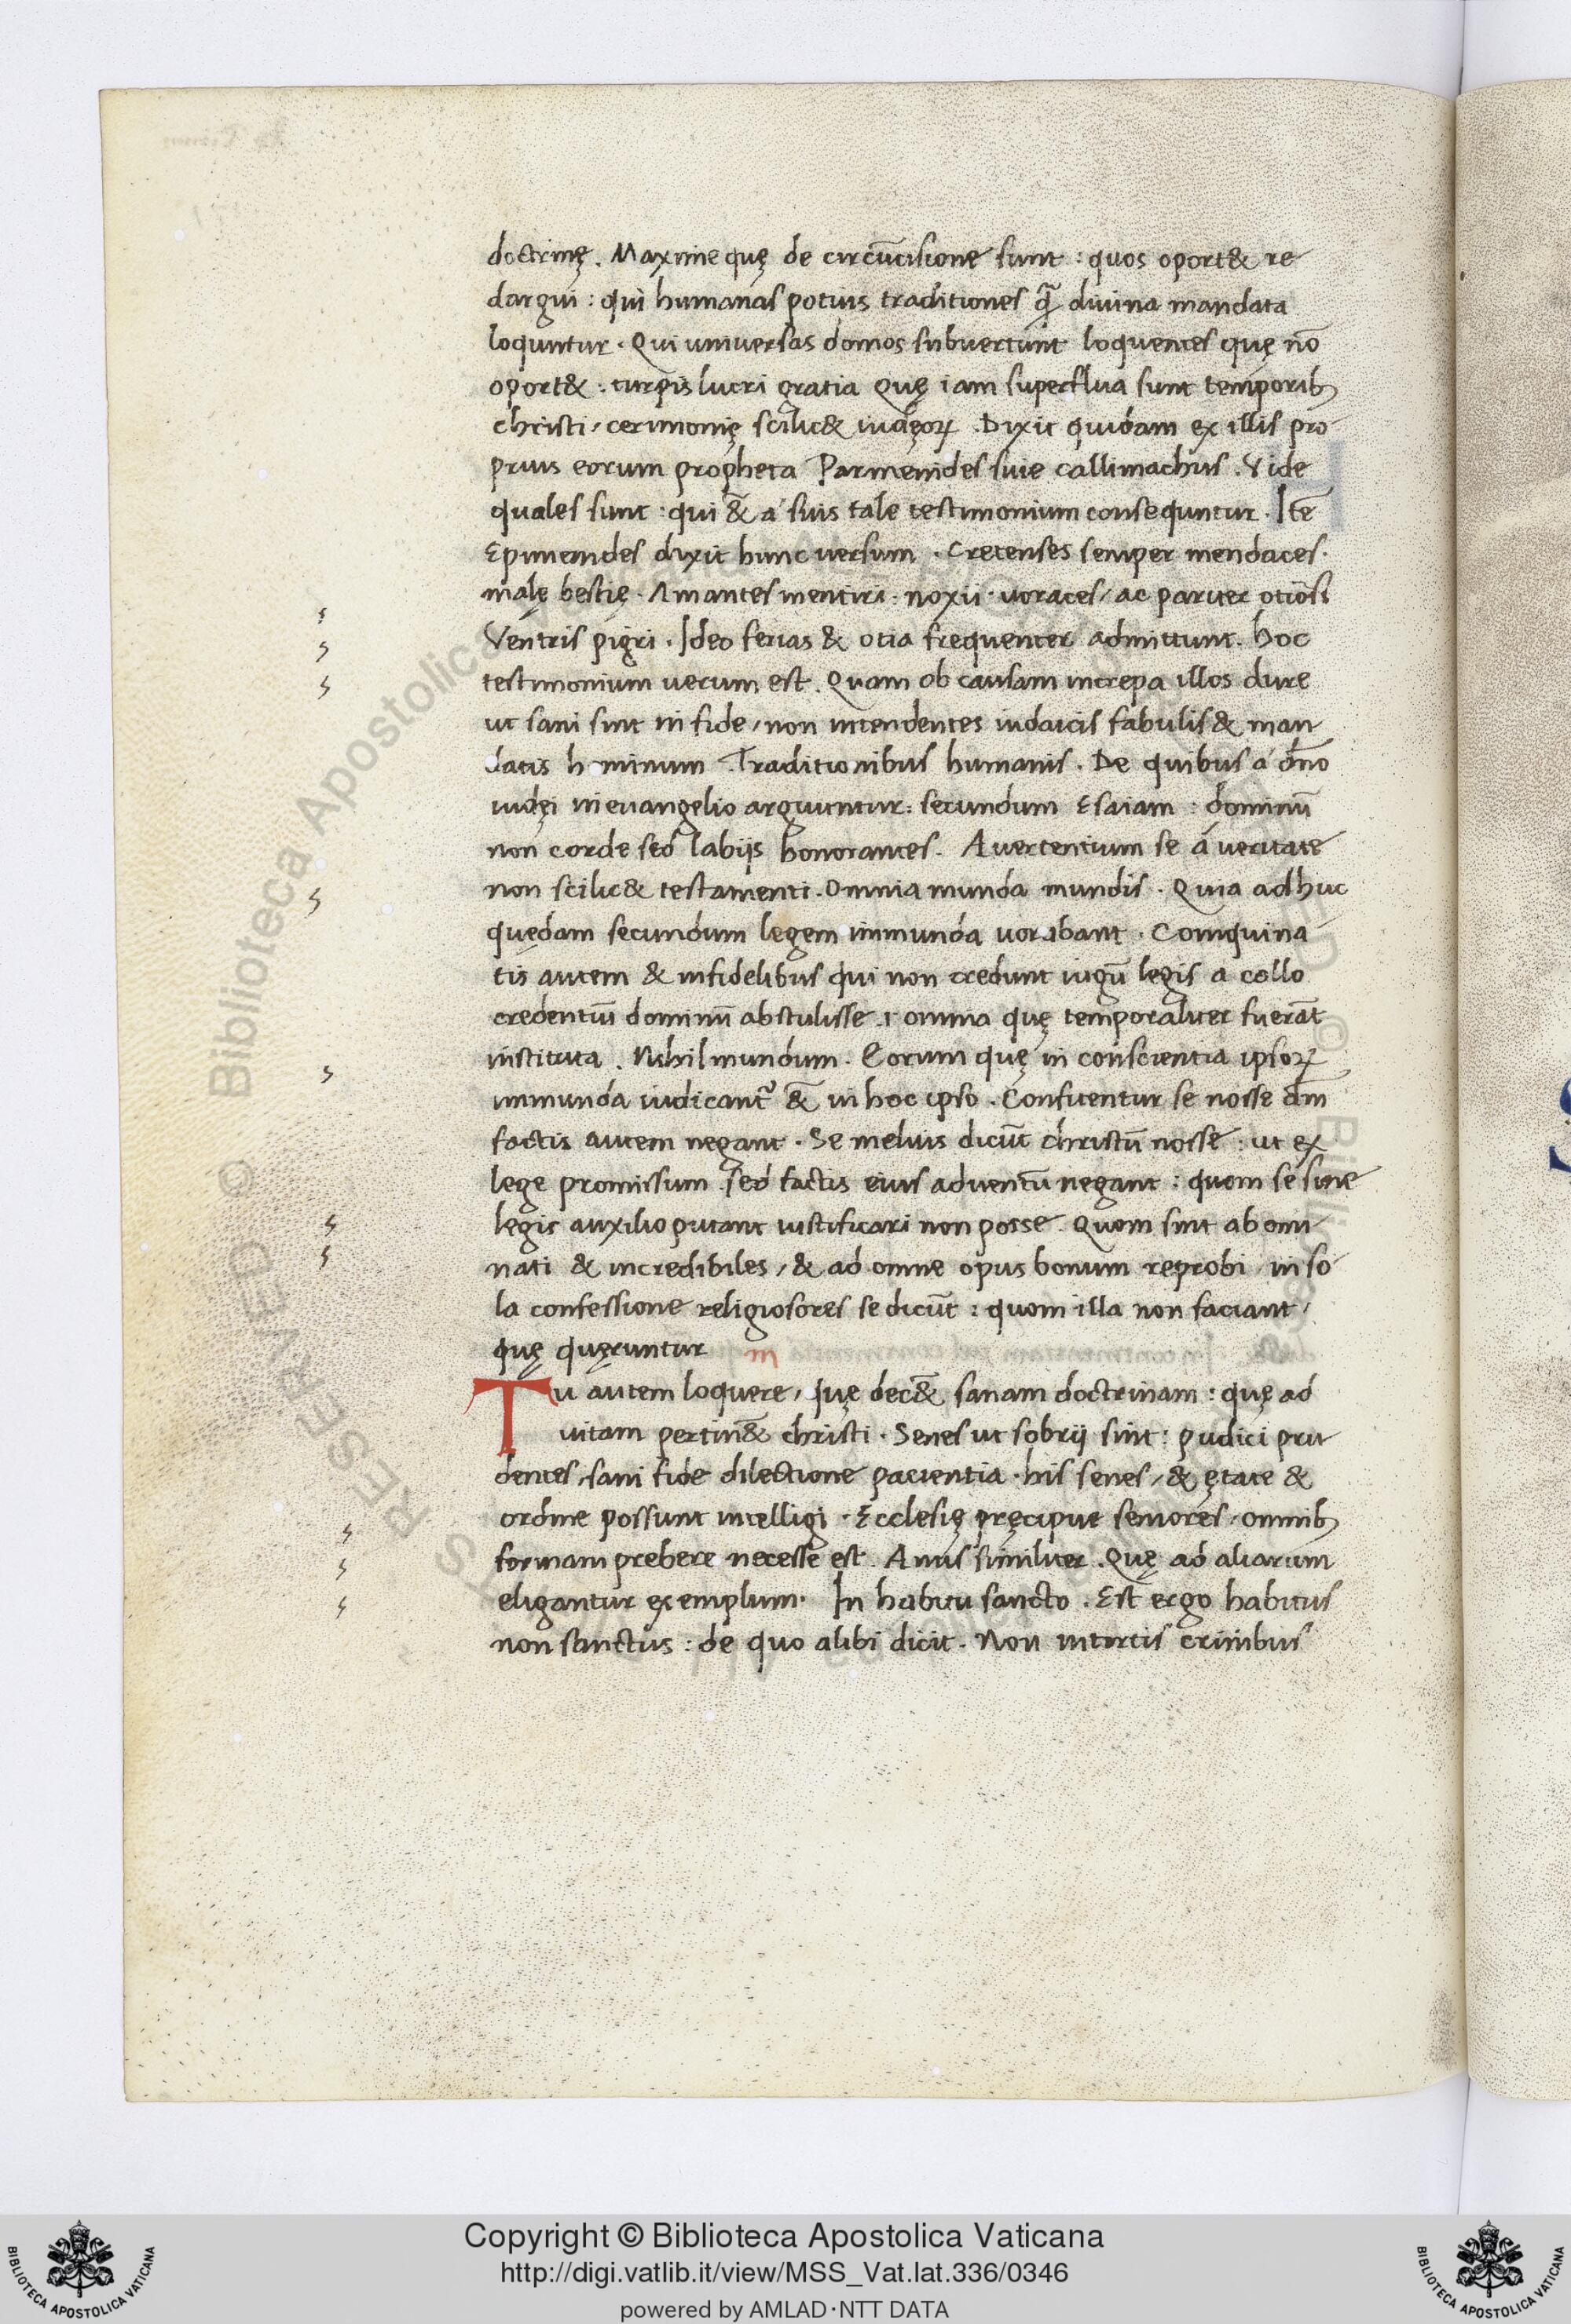 doctrinę. Maxime quę de circūcisione sunt : quos oport& re
dargui : qui humanas potius traditiones q̄ divina mandata
loquntur. Qui universas domos subvertunt loquentes quę nō
oport& . turpis lucri gratia Quę iam superflua sunt temporib;
christi / cerimonię scilic& iudęoꝝ. Dixit quidam ex illis pro
prius eorum propheta Parmenides sive callimachus. Vide
quales sunt : qui & a suis tale testimonium consequntur. Itē
Epimenides dixit hunc versum. Cretenses semper mendaces.
malę bestię. Amantes mentiri : noxii. voraces / ac pariter otiosi
Ventris pigri. Ideo ferias & otia frequenter admittunt. hoc
testimonium verum est. Quam ob causam increpa illos dure
ut sani sint in fide / non intendentes iudaicis fabulis & man
datis h minum Traditionibus humanis. De quibus á dn̄o
iudęi in evangelio arguuntur : secundum Esaiam : dominū
non corde sed labiis honorantes. Avertentium se á veritate
non scilic& testamenti. Omnia munda mundis. Quia adhuc
quędam secundum legem immunda vorabant. Coinquina
tis autem & infidelibus qui non credunt iugū legis a collo
credentiū dominū abstulisse. r omnia quę temporaliter fuerāt
instituta. Nihil mundum. Eorum quę in conscientia ipsoꝝ
immunda iudicant᷑ & in hoc ipso. Confitentur se nosse dm̄
factis autem negant. Se melius dicūt christū nosse : ut ex
lege promissum sed factis eius adventū negant : quom se sine
legis auxilio putant iustificari non posse. Quom sint abomi
nati & incredibiles / & ad omne opus bonum reprobi in so
la confessione religiosores se dicūt : quom illa non faciant /
quę quęruntur m
Tu autem loquere / quę dec& sanam doctrinam : quę ad
vitam pertin& christi. Senes ut sobrii sint : pudici pru
dentes sani fide dilectione pacientia. his senes / & ętate &
ordine possunt intelligi. Ecclesię pręcipue seniores / omnib;
formam prebere necesse est. Anus similiter. Quę ad aliarum
eligantur exemplum. In habitu sancto. Est ergo habitus
non sanctus : de quo alibi dicit. Non intortis crinibus
Copyright © Biblioteca Apostolica Vaticana
http://digi.vatlib.it/view/MSS_Vat.lat.336/0346
powered by AMLAD·NTT DATA